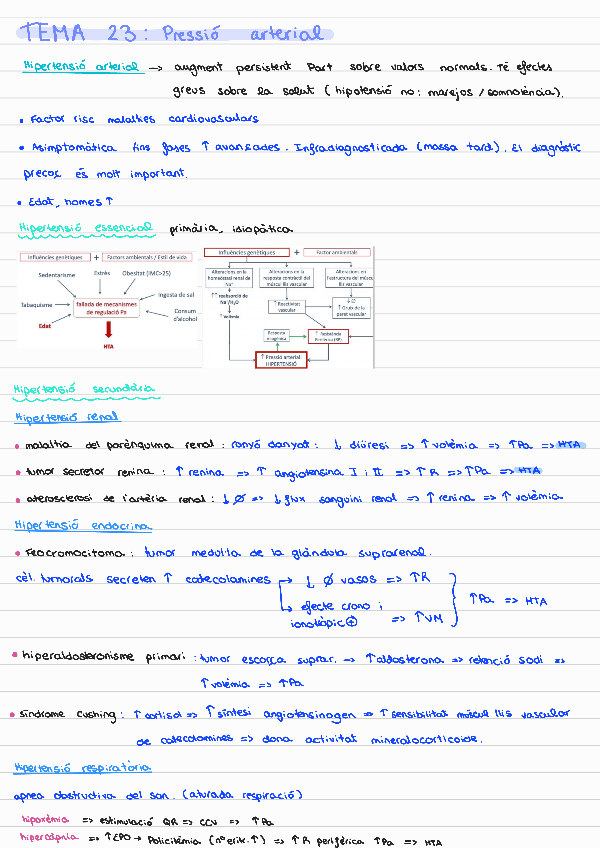 TEMA 23: Pressió arterial
Hipertensió arterial → augment persistent Part sobre valors normals. Té efectes
greus sobre la salut (hipotensió no: marejos / somnolència).
• Factor risc malalties cardiovasculars
• Asimptomàtica fins fases ↑ avançades. Infradiagnosticada (massa tard). El diagnòstic
precoç és molt important.
• Edat, homes ↑
Hipertensió essencial primària, idiopàtica
Influències genètiques + Factors ambientals / Estil de vida
Sedentarisme Estrès Obesitat (IMC>25)
Tabaquisme
fallada de mecanismes
de regulació Pa
Ingesta de sal
Consum
d'alcohol
Edat
HTA
Influències genètiques + Factor ambientals
Alteracions en la
homeòstasi renal de
Na⁺
Alteracions en la
resposta contràctil del
múscul llis vascular
Alteracions en
l'estructura del múscul
llis vascular
↑↑ reabsorció de
Na⁺/H₂O
↑ Volèmia
↑ Reactivitat
vascular
↓ Ø
↑ Gruix de la
paret vascular
Resposta
miogènica
↑ Resistència
Perifèrica (RP)
↑ Pressió arterial:
HIPERTENSIÓ
Hipertensió secundària
Hipertensió renal
• malaltia del parènquima renal: ronyó danyat: ↓ diüresi => ↑ volèmia => ↑Pa => HTA
• tumor secretor renina: ↑ renina => ↑ angiotensina I i II => ↑R => ↑Pa => HTA
• aterosclerosi de l'artèria renal: ↓ Ø => ↓ flux sanguini renal => ↑ renina => ↑ volèmia
Hipertensió endocrina
• Feocromocitoma: tumor medul·la de la glàndula suprarenal.
cèl. tumorals secreten ↑ catecolamines → ↓ Ø vasos => ↑R
→ efecte crono i
ionotròpic ⊕ => ↑VM } ↑Pa => HTA
• hiperaldosteronisme primari: tumor escorça suprar. → ↑aldosterona => retenció sodi =>
↑ volèmia => ↑Pa
• síndrome cushing: ↑ cortisol => ↑ síntesi angiotensinogen => ↑ sensibilitat múscul llis vascular
de catecolamines => dona activitat mineralocorticoide.
Hipertensió respiratòria
apnea obstructiva del son. (aturada respiració)
hipoxèmia => estimulació QR => CCV => ↑Pa
hipercàpnia => ↑EPO → Policitèmia (nº eritr. ↑) => ↑R perifèrica ↑Pa => HTA